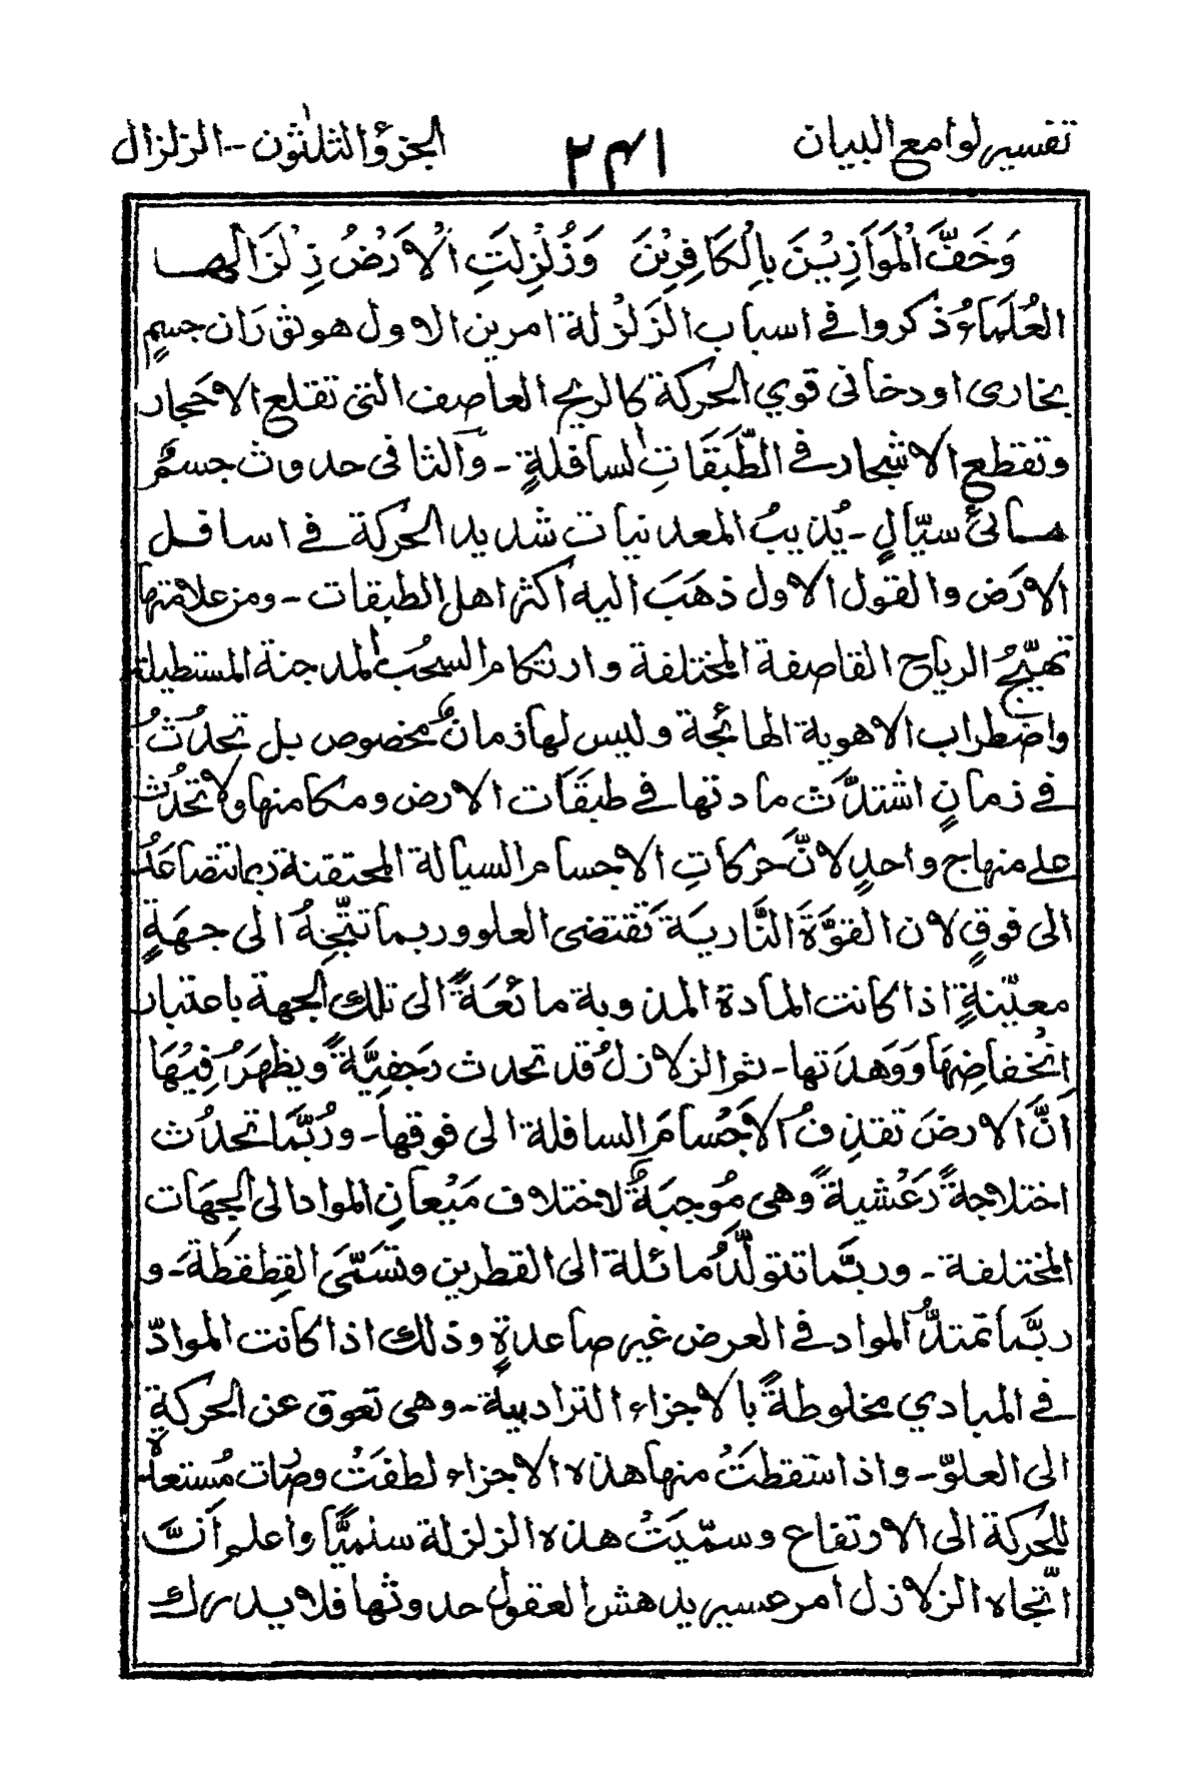 تفسير لوامع البيان
٢٤١
الجزؤ الثلٰثون - الزلزال
وَخَفَّ الْمَوَازِيْنَ بِالْكَافِرِيْنَ وَزُلْزِلَتِ الْاَرْضُ زِلْزَالَها
العُلَمَاءُ ذكروا في اسباب الزَلْزلة امرين الاول هو ثوران جسمٍ
بخارى او دخانى قوي الحركة كالريح العاصف التى تقلع الاحجار
وتقطع الاشجار في الطّبَقَاتِ السافلةٍ - وَالثانى حدوث جسمٌ
مائئ سيّالٍ - يُذيبُ المعدنيات شديد الحركة في اسافل
الارَض والقول الاول ذهَبَ اليه اكثر اهل الطبقات - ومن علامتها
تهيّجُ الرياح القاصفة المختلفة وارتكام السحُب المدجنة المستطيلة
واضطراب الاهوية الهائجة وليس لها زمانٌ مخصوص بل تحدُثُ
في زمانٍ اشتدَّت مادتها في طبقَات الارض ومكامنها ولا تحدُث
على منهاج واحدٍ لانَّ حركاتِ الاجسام السيالة المحتقنة ربما تتصاعَدُ
الى فوقٍ لان القوَّةَ النَّاريَةَ تَقتضى العلو وربما تتَّجِهُ الى جهَةٍ
معيّنةٍ اذا كانت المادة المذوبة مائعَةً الى تلك الجهة باعتبار
اِنْخفاضِهَا وَوَهدَتها - ثم الزلازلُ قد تحدث رَجفِيَّةً ويظهَرُ فِيْهَا
اَنَّ الارضَ تقذفُ الاَجْسامَ السافلة الى فوقها - ورُبَّمَا تحدُث
اختلاجةً رَعْشيةً وهى مُوجبَةٌ لاختلاف مَيْعانِ المواد الى الجهَات
المختلفة - وربَّما تتولَّدُ مائلة الى القطرين وتسَمَّى القِطقَطَةَ - و
ربَّما تمتدُّ المواد في العرض غير صاعدةٍ وذلك اذا كانت الموادّ
في المبادي مخلوطةً بالاجزاء الترابية - وهى تعوق عن الحركةِ
الى العلوّ - واذا ستقطتْ منها هذه الاجزاء لطفَتْ وصَات مُستعدة
للحركة الى الارتفاع وسمّيَتْ هذه الزلزلة سنميًّا واعلم اَنَّ
اتّجاه الزلازل امر عسير يدهش العقول حدوثها فلا يدرك